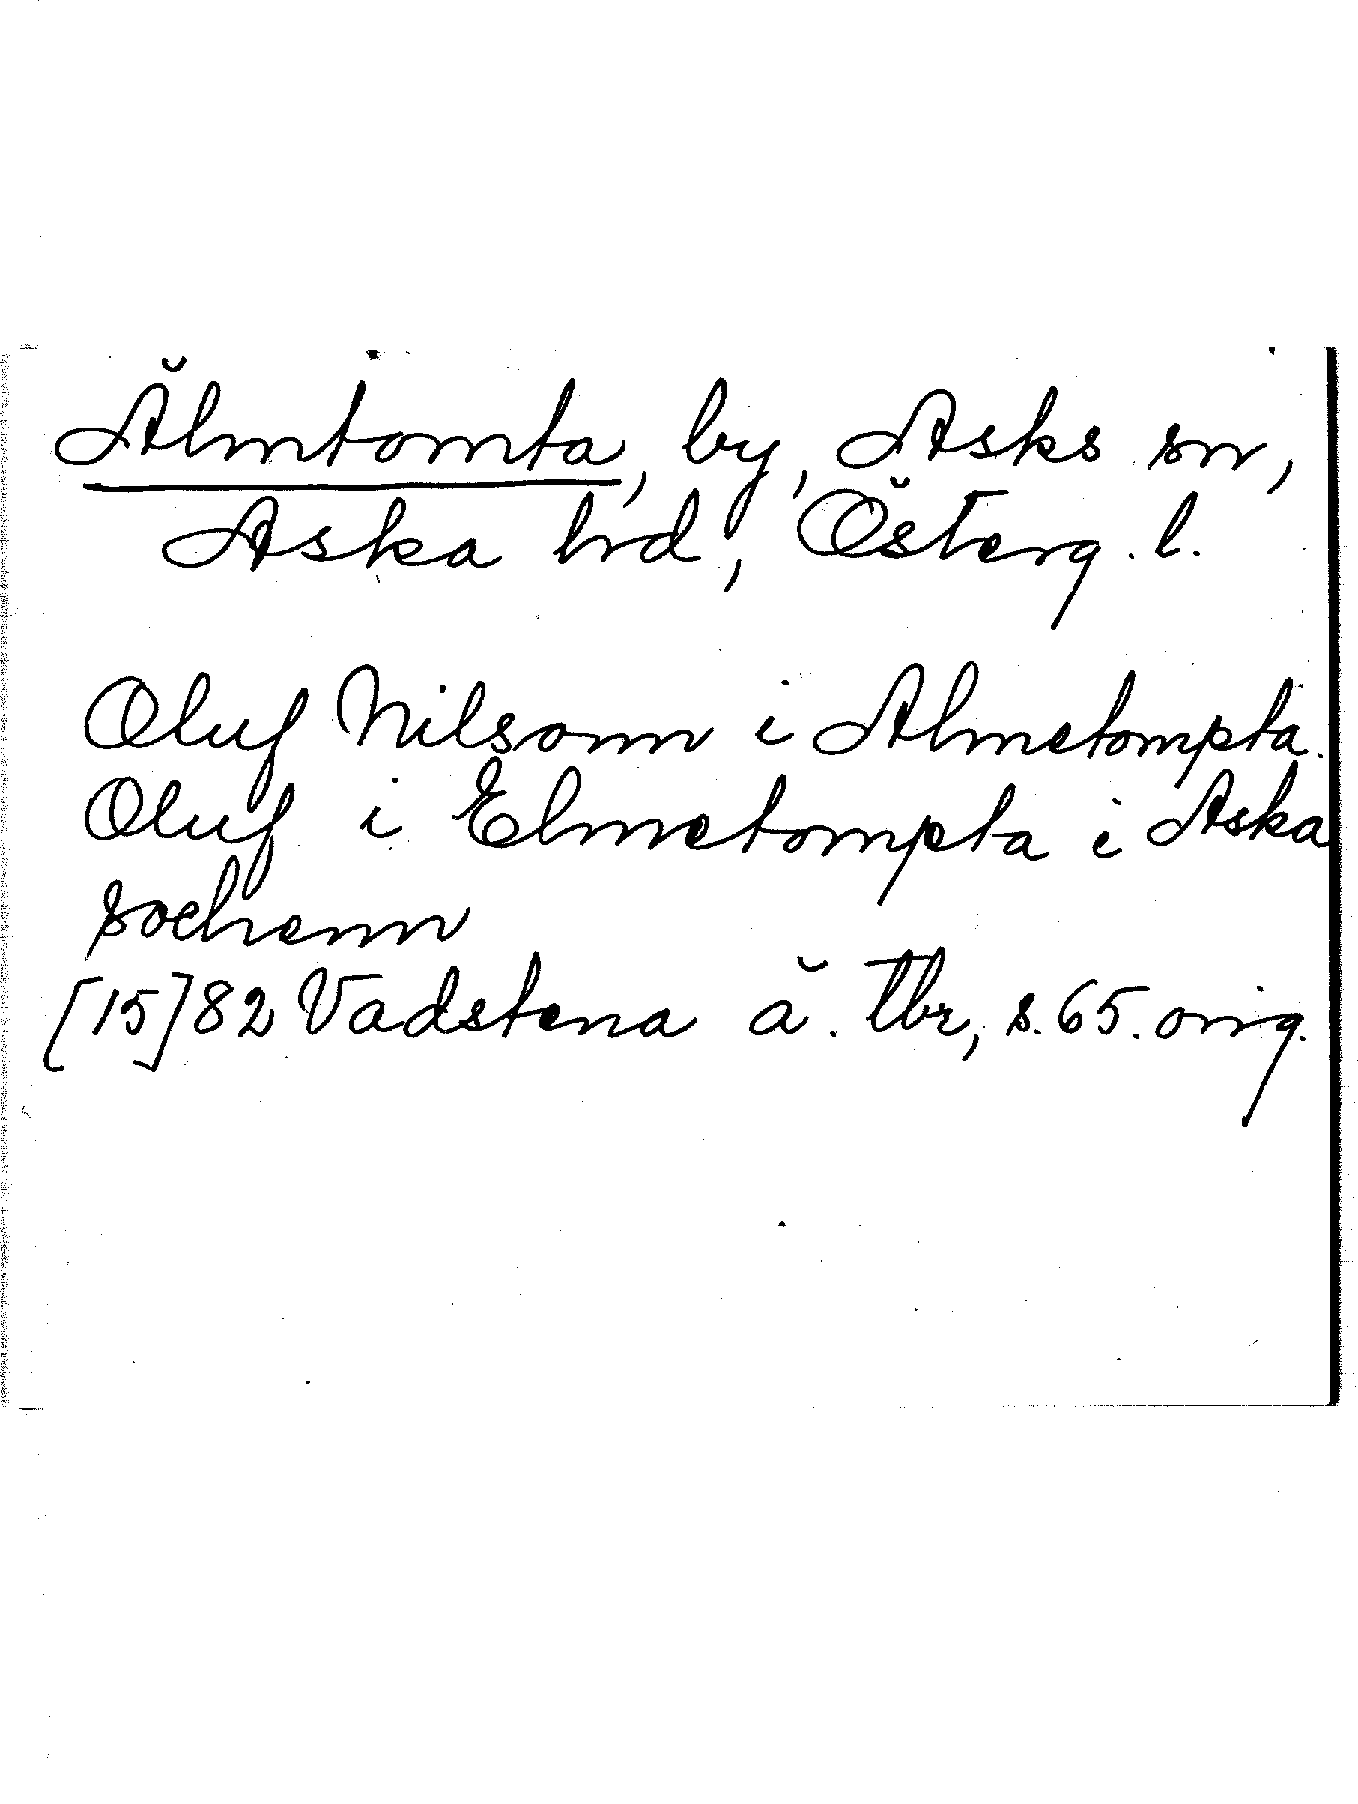 Älmtomta, by, Asks sn,
Aska hrd, Österg. l.
Oluf Nilsonn i Almetompta.
Oluf i Elmetompta i Aska
sochenn
[15]82 Vadstena ä. tbr, s. 65. orig.